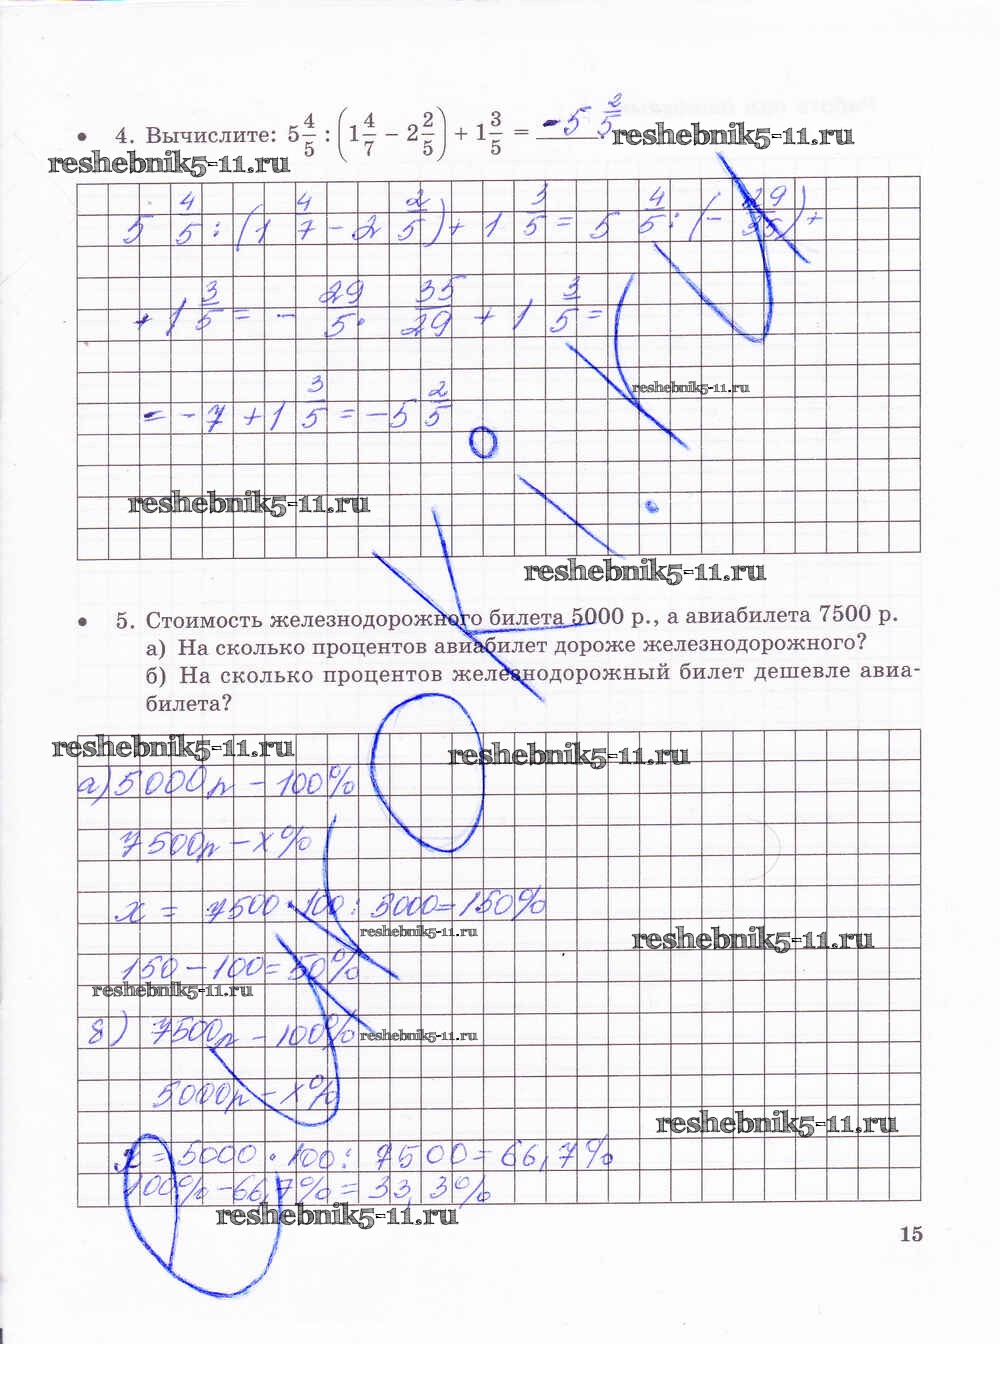 4. Вычислите: 5 4/5 : (1 4/7 − 2 2/5) + 1 3/5 = -5 2/5
reshebnik5-11.ru
reshebnik5-11.ru
5 4/5 : (1 4/7 - 2 2/5) + 1 3/5 = 5 4/5 : (- 29/35) +
+ 1 3/5 = - 29/5 · 35/29 + 1 3/5 =
reshebnik5-11.ru
= -7 + 1 3/5 = -5 2/5
reshebnik5-11.ru
reshebnik5-11.ru
5. Стоимость железнодорожного билета 5000 р., а авиабилета 7500 р.
а) На сколько процентов авиабилет дороже железнодорожного?
б) На сколько процентов железнодорожный билет дешевле авиа-
билета?
reshebnik5-11.ru
reshebnik5-11.ru
а) 5000р - 100%
7500р - х%
х = 7500 · 100 : 5000 = 150%
reshebnik5-11.ru
reshebnik5-11.ru
150 - 100 = 50%
reshebnik5-11.ru
б) 7500р - 100%
reshebnik5-11.ru
5000р - х%
reshebnik5-11.ru
х = 5000 · 100 : 7500 = 66,7%
100% - 66,7% = 33,3%
reshebnik5-11.ru
15